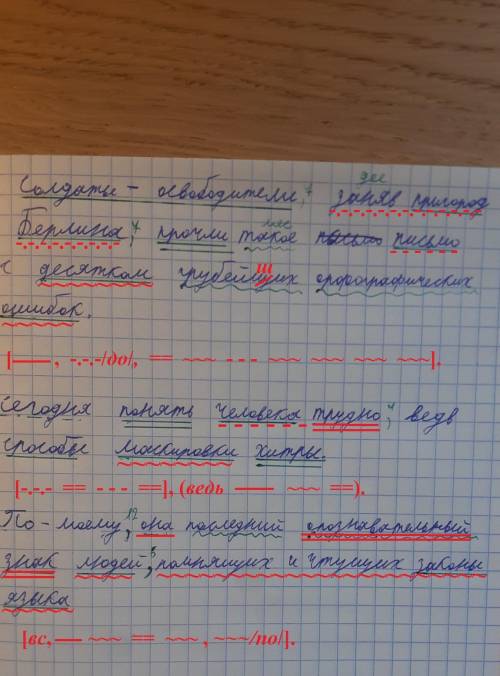 дее
Солдаты - освободители, 7 заняв пригород
мес
Берлина, 4 прочли такое письмо письмо
с десятком грубейших орфографических
ошибок.
[——, -.-.-/до/, == ~~~ --- ~~~ ~~~ ~~~ ~~~].
Сегодня понять человека трудно, 4 ведь
способы маскировки хитры.
[-.-.- == --- ==], (ведь —— ~~~ ==).
По-моему, 12 она последний опознавательный
знак людей, помнящих и чтущих законы
языка
[вс, — ~~~ == ~~~, ~~~/по/].